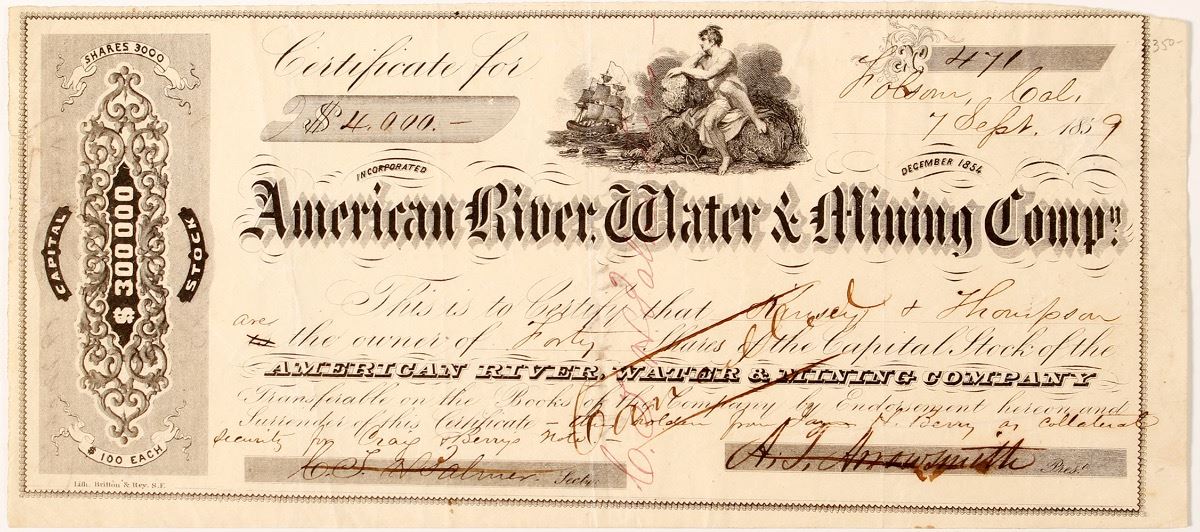 SHARES 3000
CAPITAL $300000 STOCK
$100 EACH
Certificate for
$4.000.-
471
350-
Folsom, Cal.
7 Sept. 1859
INCORPORATED
DECEMBER 1854
American River, Water & Mining Compy.
This is to Certify that & Thompson
are
the owner of Forty Shares of the Capital Stock of the
AMERICAN RIVER, WATER & MINING COMPANY
Transferable on the Books of the Company by Endorsement hereon and
Surrender of this Certificate - from H. Berry as collateral
security for Craig & Berrys Note -
Secty.
A. T. Arrowsmith Prest.
Lith. Britton & Rey. S.F.